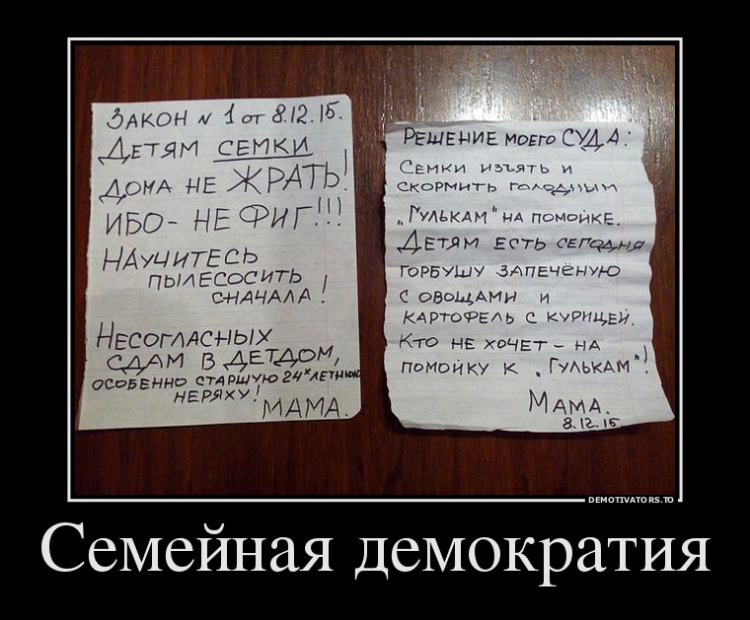 ЗАКОН № 1 от 8.12.15.
ДЕТЯМ СЕМКИ
ДОМА НЕ ЖРАТЬ!
ИБО - НЕ ФИГ!!!
НАУЧИТЕСЬ
ПЫЛЕСОСИТЬ
СНАЧАЛА!
НЕСОГЛАСНЫХ
СДАМ В ДЕТДОМ,
ОСОБЕННО СТАРШУЮ 24х ЛЕТНЮЮ
НЕРЯХУ!
МАМА.
РЕШЕНИЕ МОЕГО СУДА:
СЕМКИ ИЗЪЯТЬ И
СКОРМИТЬ ГОЛОДНЫМ
„ГУЛЬКАМ" НА ПОМОЙКЕ.
ДЕТЯМ ЕСТЬ СЕГОДНЯ
ГОРБУШУ ЗАПЕЧЁНУЮ
С ОВОЩАМИ И
КАРТОФЕЛЬ С КУРИЦЕЙ.
КТО НЕ ХОЧЕТ - НА
ПОМОЙКУ К „ГУЛЬКАМ"!
МАМА.
8.12.15
DEMOTIVATORS.TO
Семейная демократия